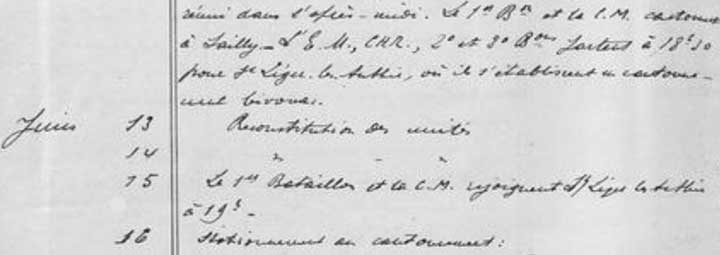 réuni dans l'après-midi. Le 1er Bon et la C.M. cantonnent
à Sailly - L'E.M., CHR., 2e et 3e Bons partent à 18h30
pour St Léger-les-Authie, où ils s'établissent en cantonne-
ment bivouac.
Juin 13 Reconstitution des unités
14 " - "
15 Le 1er Bataillon et la C.M. rejoignent St Léger les Authie
à 19h -
16 Stationnement au cantonnement :